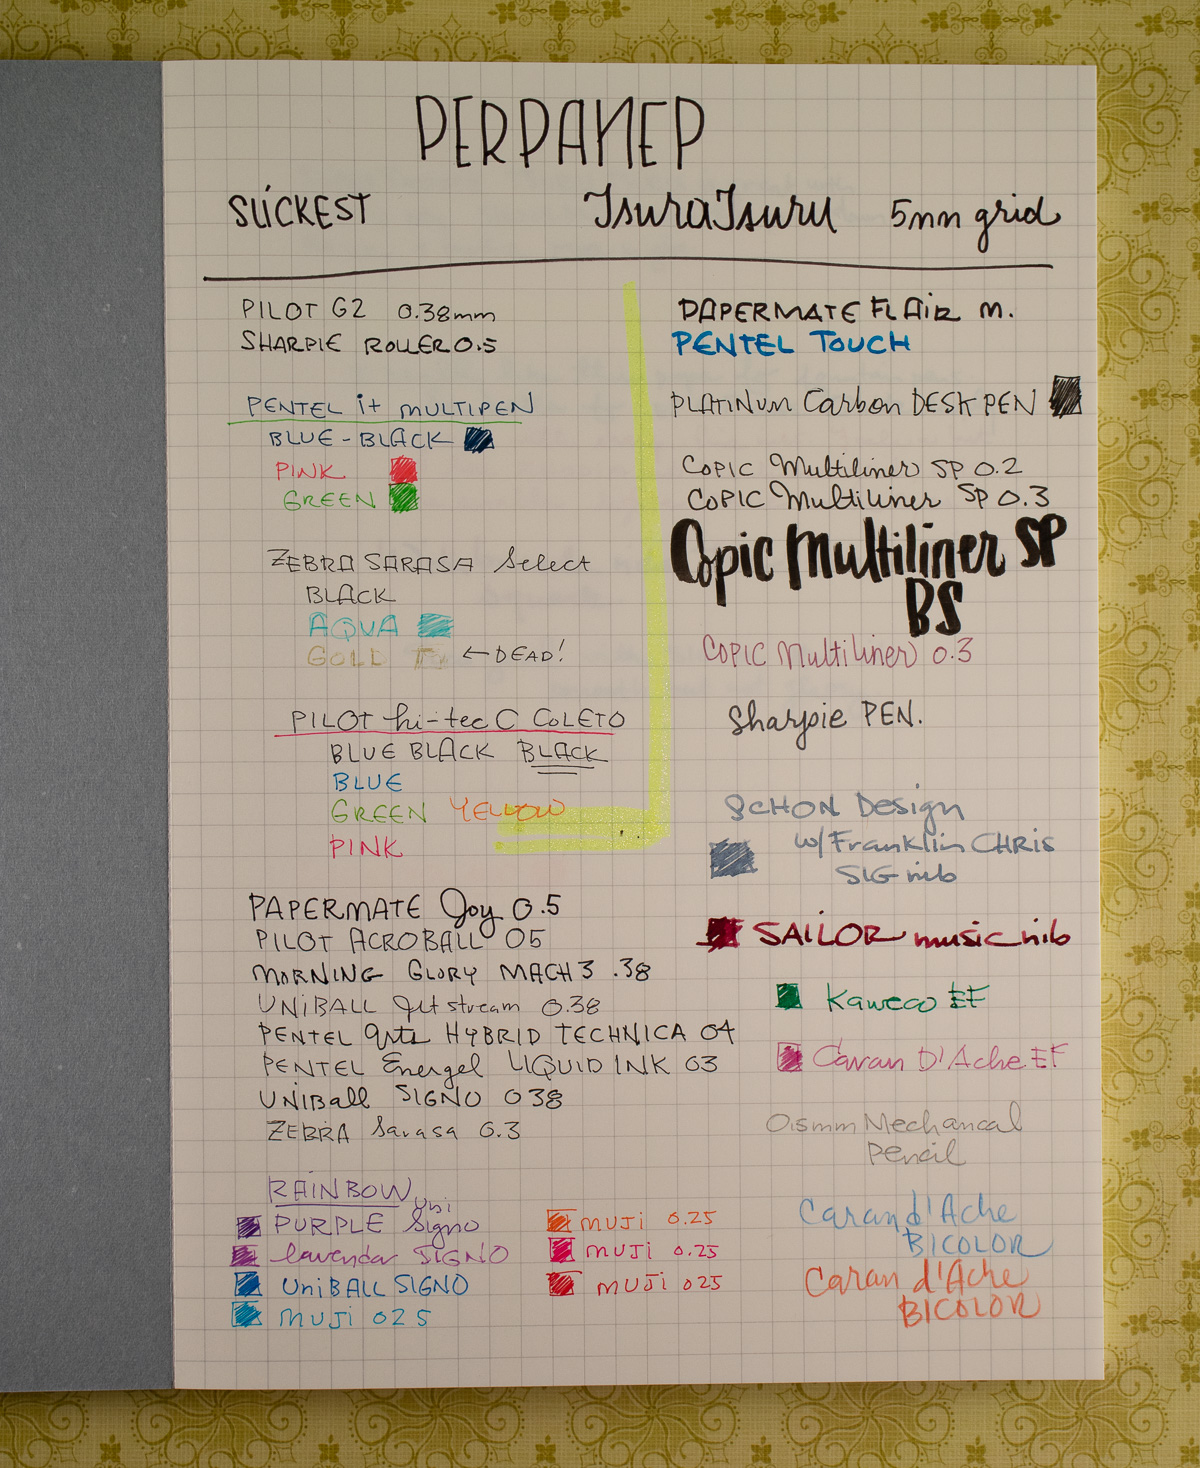 PERPANEP
SLICKEST TsuraTsuru 5mm grid
PILOT G2 0.38mm
SHARPIE ROLLER 0.5
PENTEL i+ MULTIPEN
BLUE-BLACK
PINK
GREEN
ZEBRA SARASA Select
BLACK
AQUA
GOLD ← DEAD!
PILOT hi-tec C COLETO
BLUE BLACK BLACK
BLUE
GREEN YELLOW
PINK
PAPERMATE Joy 0.5
PILOT ACROBALL 05
MORNING GLORY MACH 3 .38
UNIBALL Jetstream 0.38
PENTEL Arts HYBRID TECHNICA 04
PENTEL Energel LIQUID INK 03
UNiBall SIGNO 038
ZEBRA Sarasa 0.3
RAINBOW
PURPLE Uni Signo
lavendar SIGNO
UniBALL SIGNO
MUJI 025
MUJI 0.25
MUJI 0.25
MUJI 025
PAPERMATE FLAIR M.
PENTEL TOUCH
PLATINUM Carbon DESK PEN
COPIC Multiliner SP 0.2
COPIC Multiliner SP 0.3
Copic Multiliner SP
BS
COPIC Multiliner 0.3
Sharpie PEN.
SCHON Design
w/ Franklin CHRIS
SIG nib
SAILOR music nib
Kaweco EF
Caran D'Ache EF
0.5mm Mechancal
Pencil
Caran d'Ache
BICOLOR
Caran d'Ache
BICOLOR